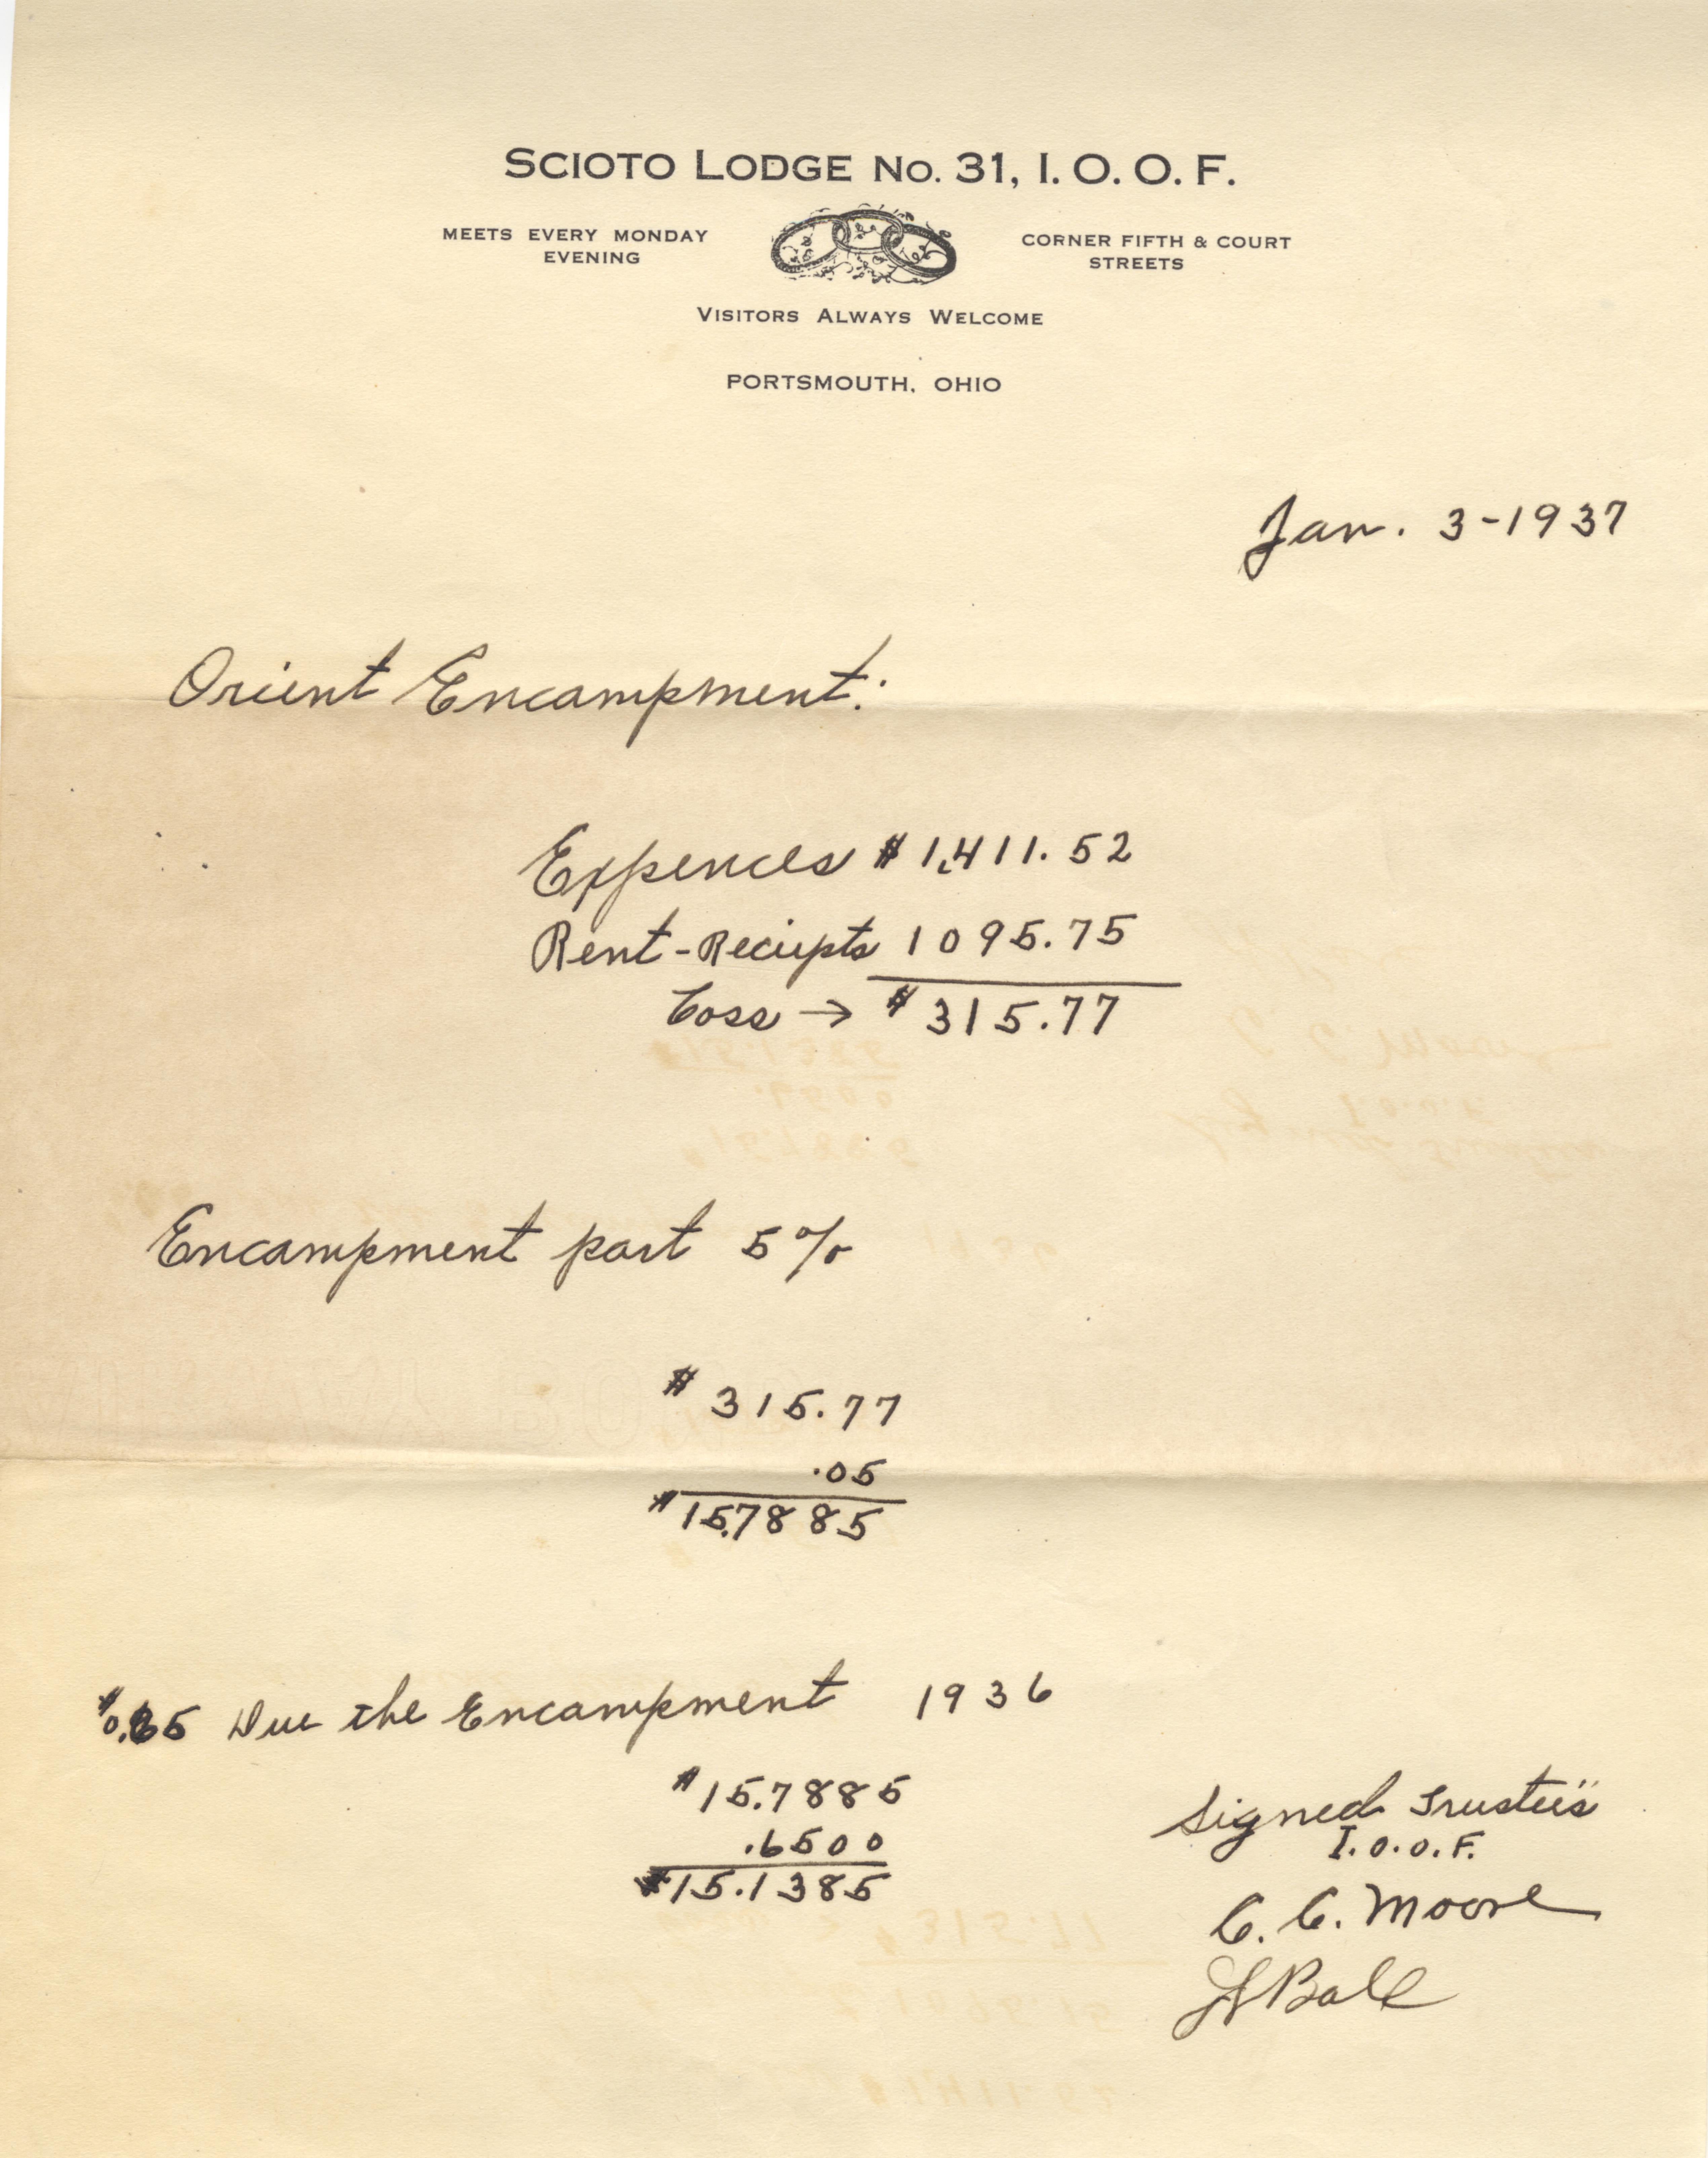 SCIOTO LODGE No. 31, I. O. O. F.
MEETS EVERY MONDAY
EVENING
CORNER FIFTH & COURT
STREETS
VISITORS ALWAYS WELCOME
PORTSMOUTH, OHIO
Jan. 3-1937
Orient Encampment:
Expences $1,411.52
Rent-Reciepts 1095.75
Loss → $315.77
Encampment part 5%
$315.77
.05
$15.7885
$0.65 Due the Encampment 1936
$15.7885
.6500
$15.1385
Signed Trustees
I.O.O.F.
C. C. Moore
Ball